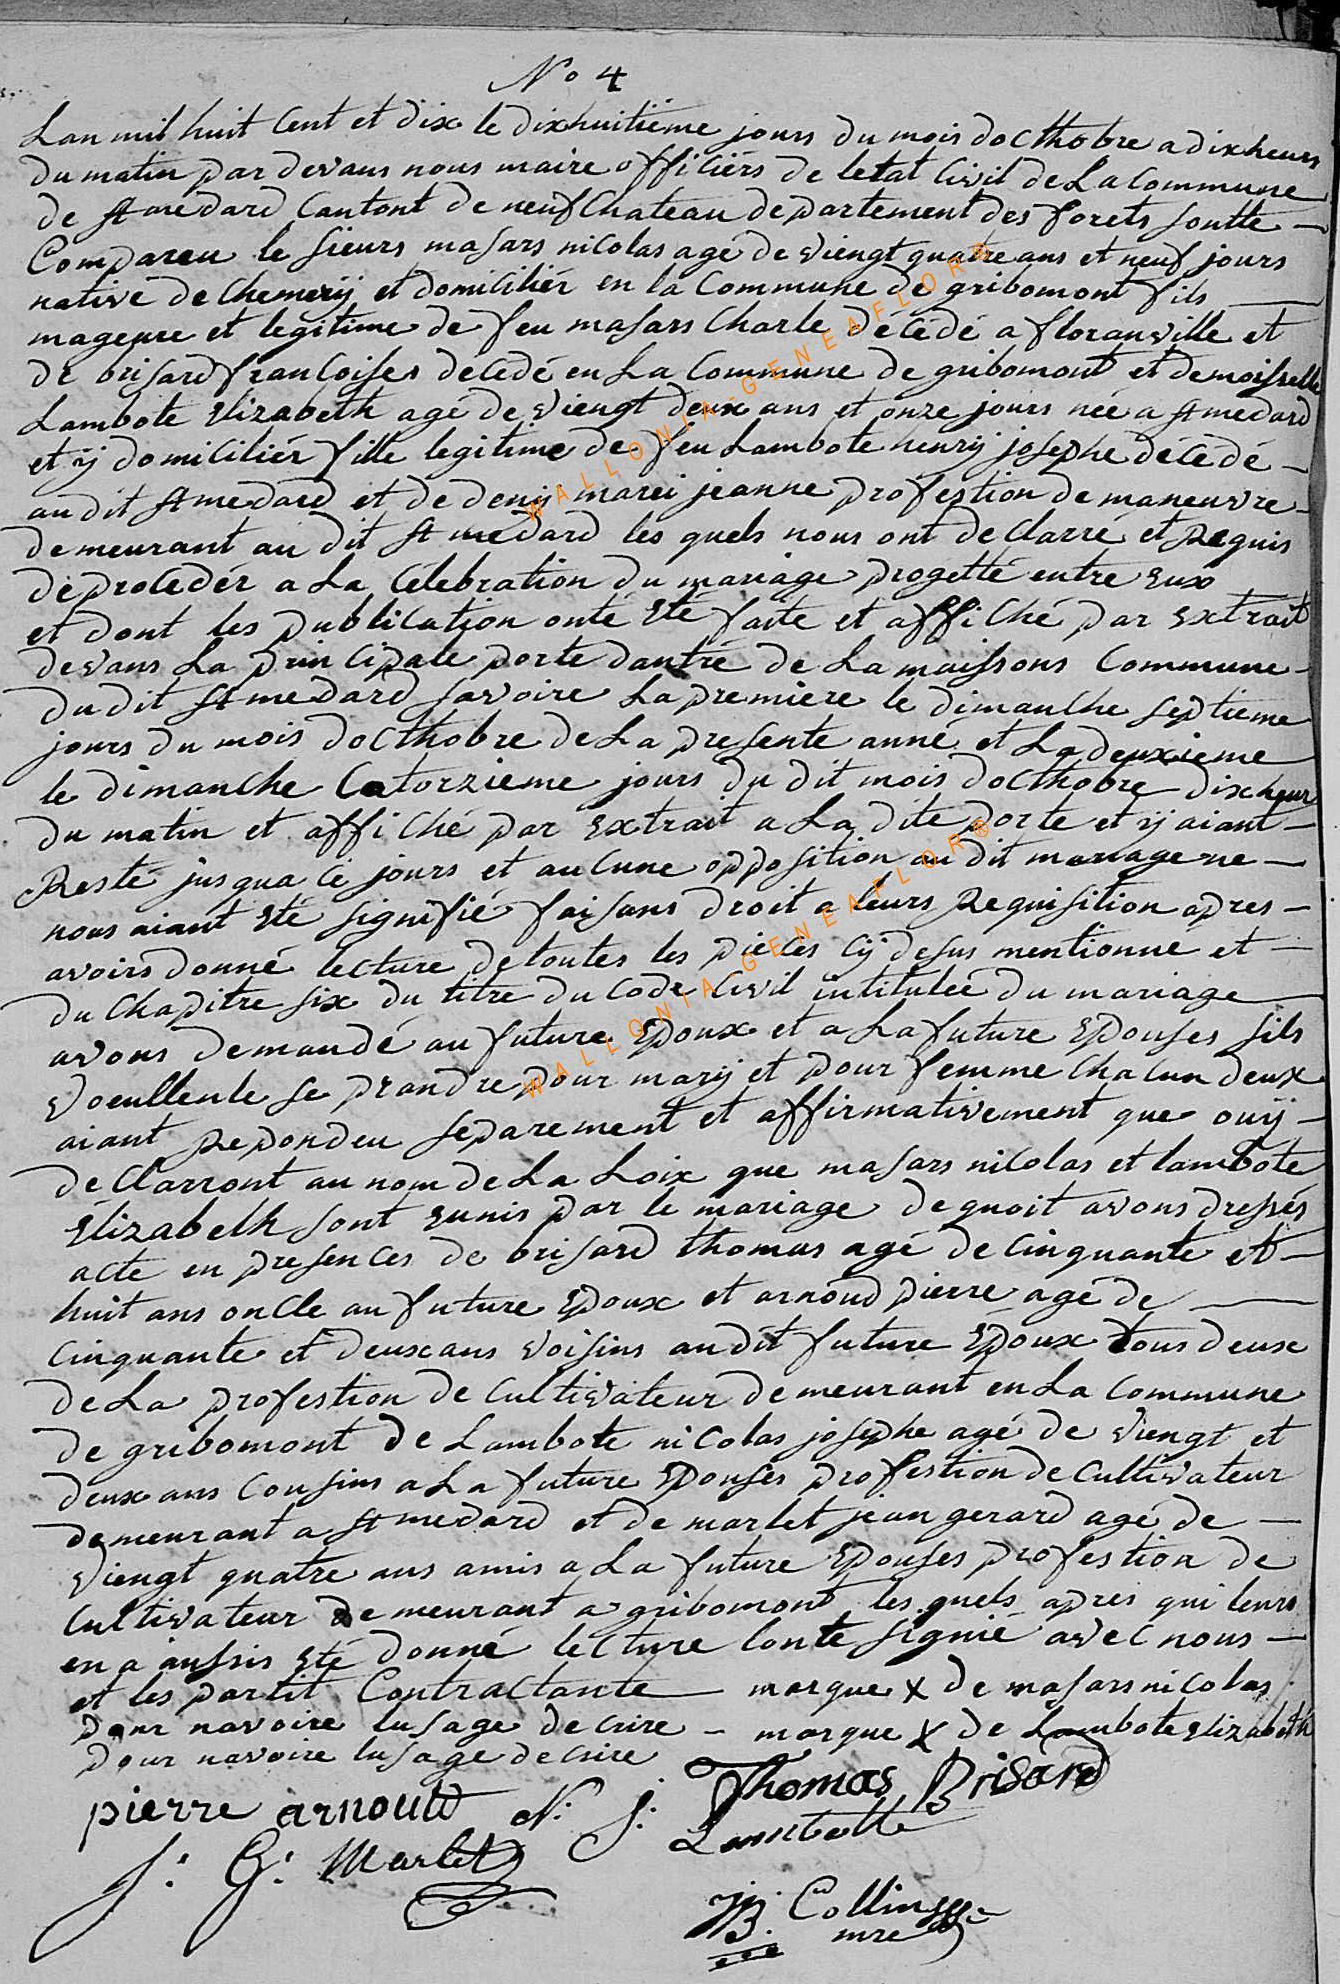 No 4
Lan mil huit Cent et dix le dixhuitième jours du mois docthobre a dixheurs
du matin par devans nous maire officiérs de letat Civil de La Commune
de St medard Cantont de neufChateau departement des forets soutte
Compareu le sieurs masars nicolas agé de viengt quatre ans et neuf jours
native de Chemerij et domiciliér en la Commune de gribomont fils
mageure et legitime de feu masars Charle décédé a floranville et
de brisard françoises décedé en La Commune de gribomont et demoisselle
Lambote Elizabeth agé de viengt deux ans et onze jours née a St medard
et ij domiciliér fille legitime de feu Lambote henrij josephe décédé
au dit St medard et de denij marei jeanne profestion de maneuvre
demeurant au dit St medard les quels nous ont deClarré et Requis
de procedér a La Célébration du mariage progetté entre eux
et dont les publication onté Eté faite et affiché par Extrait
devans La principale porte dantré de La maissons Commune
du dit St medard savoire La premiere le dimanche septieme
jours du mois docthobre de La presente anné et La deuxieme
le dimanche Catorzieme jours du dit mois docthobre dixheur
du matin et affiché par Extrait a La dite porte et ij aiant
Resté jusqua Ce jours et auCune opposition au dit mariage ne
nous aiant Eté signifié faisans droit a leurs Requisition apres
avoirs donné lecture de toutes les pieces Cij desus mentionne et
du Chapitre six du titre du Code Civil intitulée du mariage
avons demandé au future Epoux et a La future Epouses sils
voeullente se prandre pour marij et pour femme Chacun deux
aiant Repondeu séparement et affirmativement que ouij
deClarront au nom de La Loix que masars nicolas et lambote
Elizabeth sont Eunis par le mariage de quoit avons dressés
acte en presences de brisard thomas agé de Cinquante et
huit ans oncle au future Epoux et arnoud pierre agé de
Cinquante et deux ans voisins au dit future Epoux tous deux
de La profestion de Cultivateur demeurant en La Commune
de gribomont de Lambote nicolas josephe agé de viengt et
deux ans Cousins a La future Epouses profestion de Cultivateur
demeurant a St medard et de marlet jean gerard agé de
viengt quatre ans amis a La future Epouses profestion de
Cultivateur demeurant a gribomont les quels apres qui leurs
en a aussis Eté donné lecture Lonte signié avec nous
et les partit Contractante marque X de masars nicolas
pour navoire lusage de crire marque X de Lambote Elizabeth
pour navoire lusage de crire
pierre arnould Thomas Brisard
N. J. Lambotte
J. G. Marlet
JB. Collin
mre
WALLONIA-GENEAFLOR®
WALLONIA-GENEAFLOR®